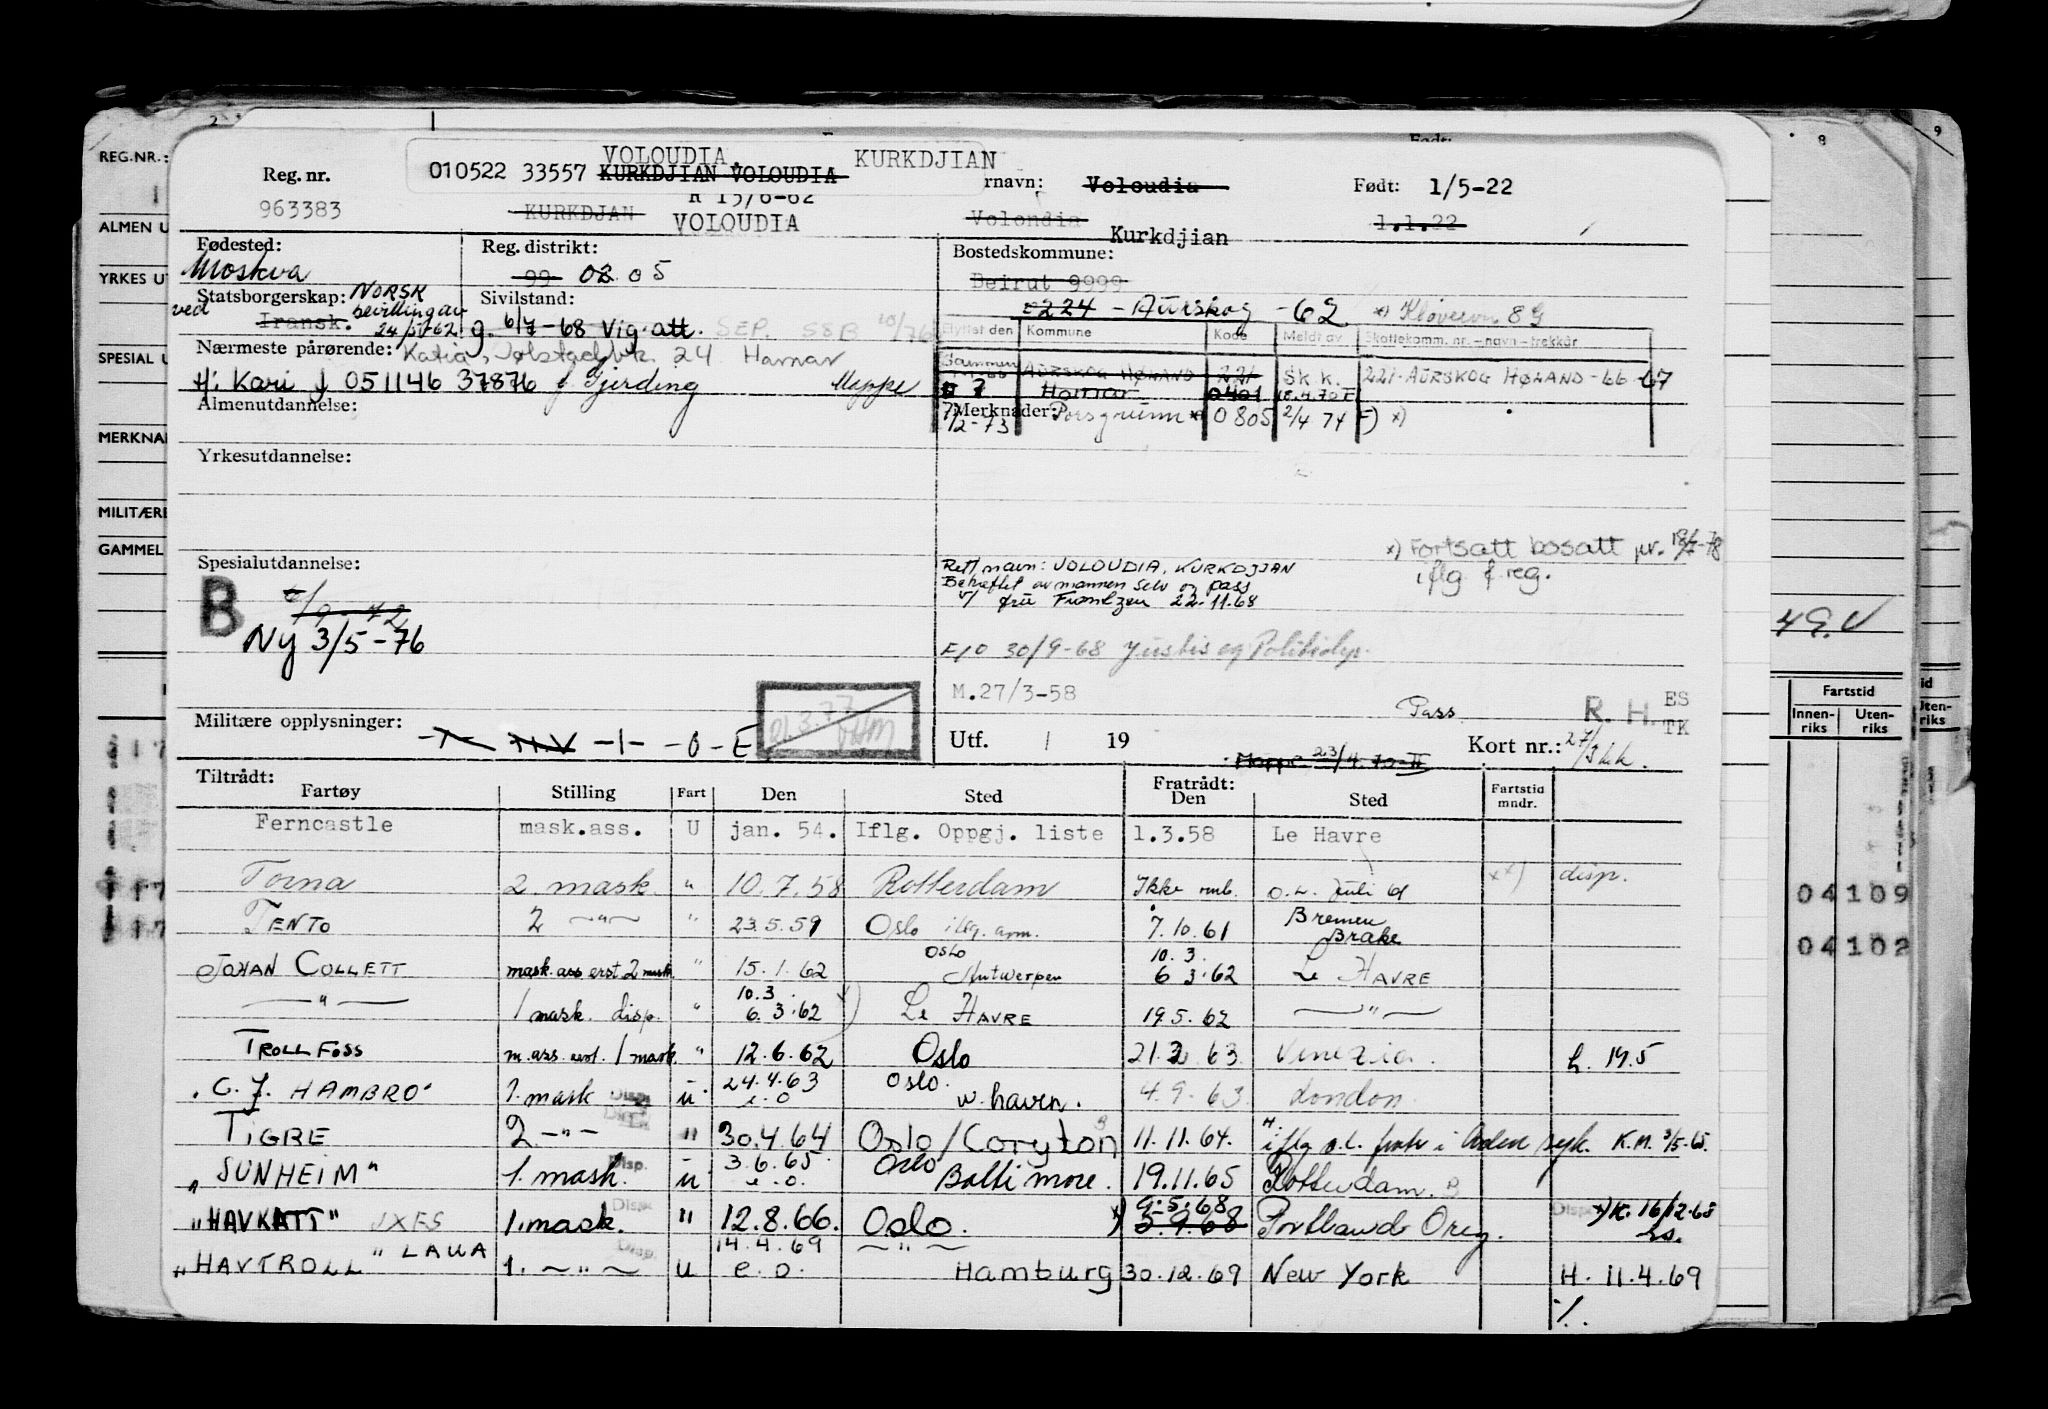 2
9
8
REG.NR.:
VOLOUDIA, KURKDJIAN
Reg. nr. 010522 33557 KURKDJIAN VOLOUDIA rnavn: Voloudia Født: 1/5-22
963383 KURKDJAN R 15/6-62 Volondia 1.1.22
ALMEN U VOLOUDIA Kurkdjian
Fødested: Reg. distrikt: Bostedskommune:
Moskva 99 02 05 Beirut 9999
YRKES UT
Statsborgerskap: NORSK Sivilstand: 0224 - Aurskog - 62 x) Kløverv. 8G
ved bevilling av
Iransk. 24/5-62 g. 6/7-68 Vig.att. SEP. S&B 10/76 Flyttet den Kommune Kode Meldt av Skattekomm. nr. - navn - trekkår
SPESIAL U Nærmeste pårørende: Katia, 24 Hamar
AURSKOG HØLAND 221 Sk.k. 221-AURSKOG HØLAND-66-67
H: Kari f 051146 37876 f. Gjerding Mappe ? Hamar 0401
Almenutdannelse: Merknader: Porsgrunn x) 0805 2/4 74 F) x)
1/2-73
MERKNA
Yrkesutdannelse:
MILITÆRE
GAMMEL
x) Fortsatt bosatt pr.
iflg f.reg.
Spesialutdannelse: Rett navn: VOLOUDIA, KURKDJIAN
Bekreftet av mannen selv og pass
v/ fru Frantzen 22.11.68
B
Ny 3/5-76
F/O 30/9-68 Justis og Politidep.
M.27/3-58
Militære opplysninger: -1- -0- E Pass R. H. ES
TK
Utf. / 19 Kort nr.: 27/
Mappe 23/4.70-II
Tiltrådt: Fratrådt: Fartstid
Fartøy Stilling Fart Den Sted Den Sted mndr.
Ferncastle mask.ass. U jan. 54. Iflg. Oppgj. liste 1.3.58 Le Havre
Torna 2. mask. " 10.7.58 Rotterdam Ikke mb. o.L. juli 61 xx) disp.
TENTO 2 —"— " 23.5.59 Oslo iflg. 7.10.61 Bremen
Brake
JOHAN COLLETT mask.ass erst 2 mask. " 15.1.62 OSLO Antwerpen 10.3. 6 3.62 Le HAVRE
—"— 1 mask. disp. " 10.3 6.3.62 x) Le HAVRE 19.5.62 —"—
TROLL FOSS m.ass. erst. 1 mask. " 12.6.62 Oslo 21.2.63. Venezia. h. 19.5
"C. J. HAMBRO" 1. mask Disp. u. 24.4.63 e.o Oslo. w. haven. 4.9.63. London
TIGRE 2 -"- " 30.4.64 Oslo/Coryton 11.11.64. iflg o.l. fratr i syk. K.M. 3/5-65.
"SUNHEIM" 1. mask. Disp. u 3.6.65 e.o. Oslo Baltimore. 19.11.65 Rotterdam.
"HAVKATT" JXFS 1. mask. Disp. " 12.8.66. Oslo. x) 9.5.68 5.9.68 Portland Oreg. Disp. x) K. 16/12-68
"HAVTROLL" LAUA 1. —"— Disp. u 14.4.69 e.o. —"— Hamburg 30.12.69 New York H. 11.4.69
·/.
49.V
Fartstid
Innen-
riks
Uten-
riks
04109
04102